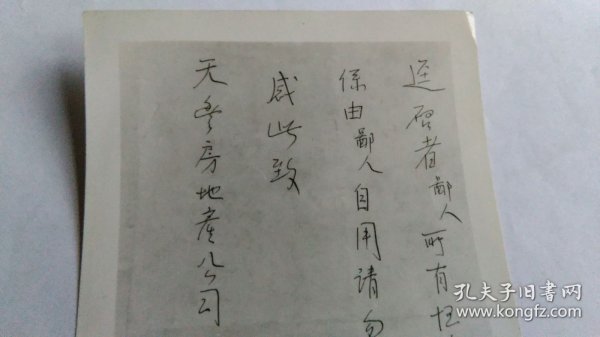 迳啓者鄙人所有
係由鄙人自用请勿
感此致
天丰房地產公司
孔夫子旧書网
www.kongfz.com